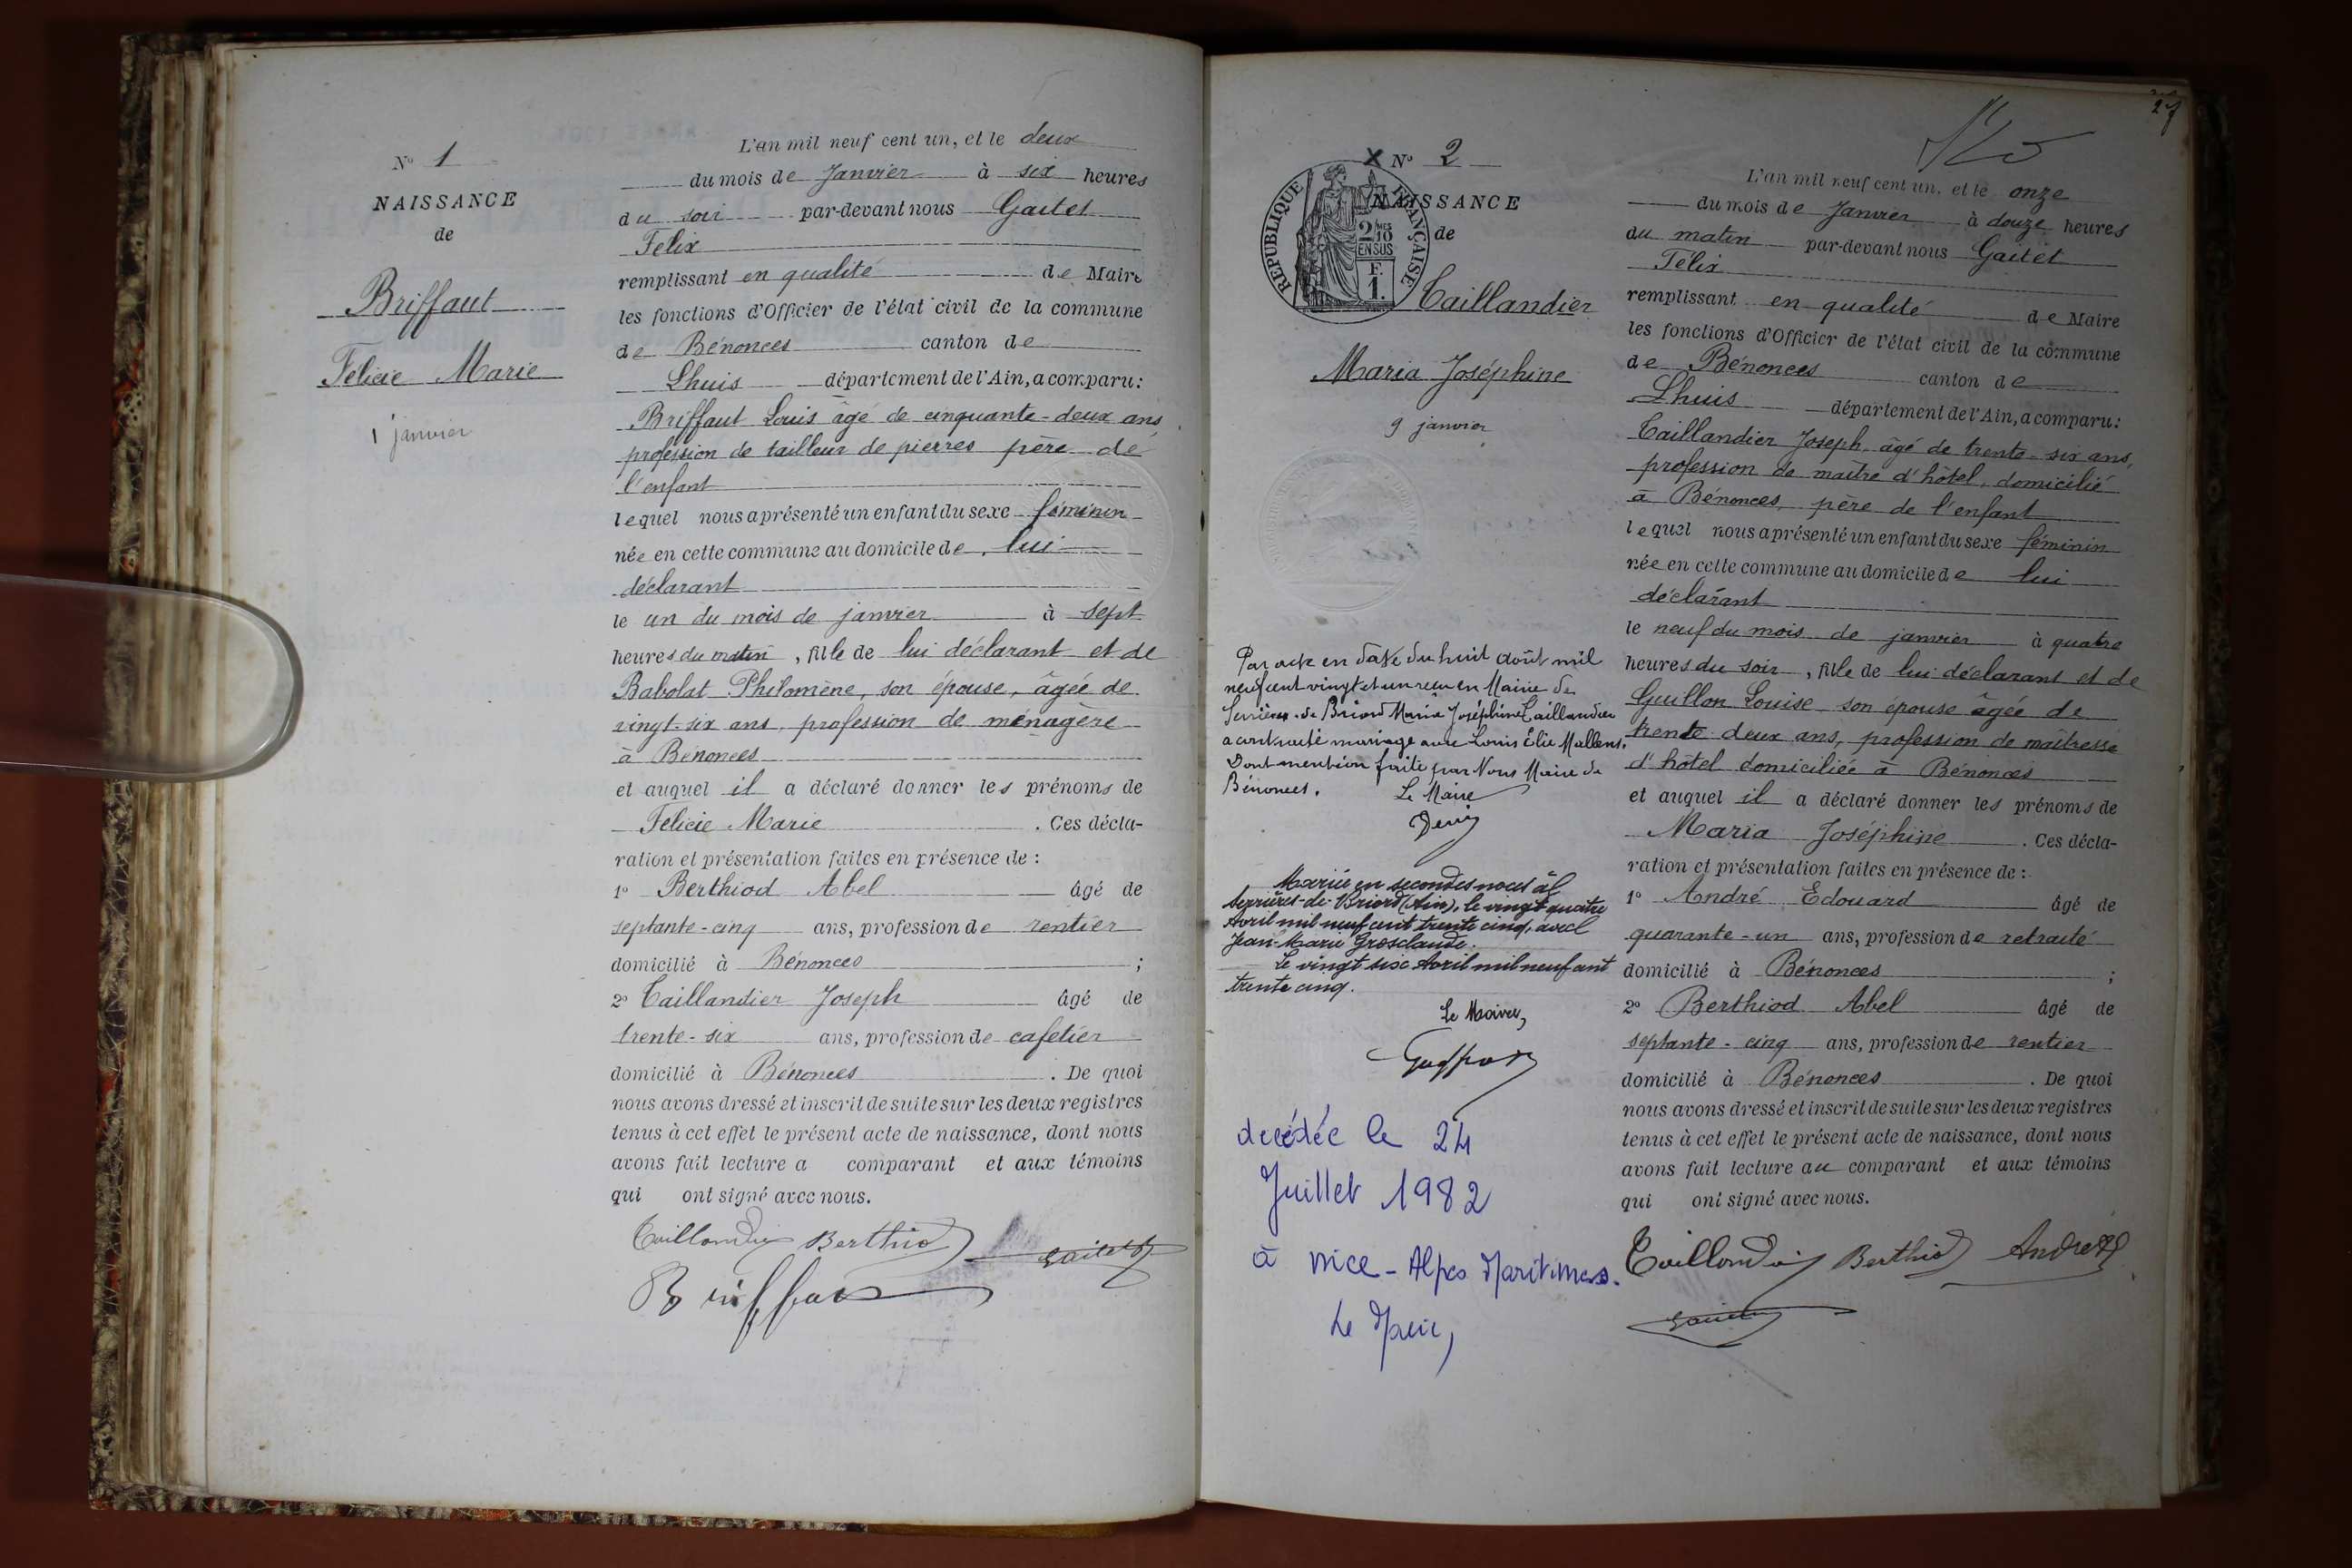 N° 1
NAISSANCE
de
Briffaut
Felicie Marie
1 janvier
L'an mil neuf cent un, et le deux
du mois de Janvier à six heures
du soir par-devant nous Gaitet
Felix
remplissant en qualité de Maire
les fonctions d'Officier de l'état civil de la commune
de Bénonces canton de
Lhuis département de l'Ain, a comparu:
Briffaut Louis âgé de cinquante-deux ans
profession de tailleur de pierres père de
l'enfant
lequel nous a présenté un enfant du sexe féminin
née en cette commune au domicile de lui
déclarant
le un du mois de janvier à sept
heures du matin, fille de lui déclarant et de
Babolat Philomène, son épouse, âgée de
vingt-six ans, profession de ménagère
à Bénonces
et auquel il a déclaré donner les prénoms de
Felicie Marie. Ces décla-
ration et présentation faites en présence de :
1° Berthiod Abel âgé de
septante-cinq ans, profession de rentier
domicilié à Bénonces ;
2° Taillandier Joseph âgé de
trente-six ans, profession de cafetier
domicilié à Bénonces. De quoi
nous avons dressé et inscrit de suite sur les deux registres
tenus à cet effet le présent acte de naissance, dont nous
avons fait lecture a comparant et aux témoins
qui ont signé avec nous.
Taillandier Berthiod Gaitet
Briffaut
2
N° 2
NAISSANCE
de
REPUBLIQUE FRANÇAISE
2/10 MES
EN SUS
F.
1.
Taillandier
Maria Joséphine
9 janvier
Par acte en date du huit août mil
neuf cent vingt et un reçu en Mairie de
Serrières-de-Briord Maria Joséphine Taillandier
a contracté mariage avec Louis Élie Mallens.
Dont mention faite par Nous Maire de
Bénonces.
Le Maire
Mariée en secondes noces à
Serrières-de-Briord (Ain), le vingt quatre
Avril mil neuf cent trente cinq, avec
Jean-Marie Grosclaude.
Le vingt six Avril mil neuf cent
trente cinq.
Le Maire,
decédée le 24
Juillet 1982
à Nice - Alpes Maritimes.
Le Maire,
L'an mil neuf cent un, et le onze
du mois de Janvier à douze heures
du matin par-devant nous Gaitet
Félix
remplissant en qualité de Maire
les fonctions d'Officier de l'état civil de la commune
de Bénonces canton de
Lhuis département de l'Ain, a comparu:
Taillandier Joseph, âgé de trente-six ans,
profession de maître d'hôtel, domicilié
à Bénonces, père de l'enfant
lequel nous a présenté un enfant du sexe féminin
née en cette commune au domicile de lui
déclarant
le neuf du mois de janvier à quatre
heures du soir, fille de lui déclarant et de
Guillon Louise son épouse âgée de
trente deux ans, profession de maîtresse
d'hôtel domiciliée à Bénonces
et auquel il a déclaré donner les prénoms de
Maria Joséphine. Ces décla-
ration et présentation faites en présence de :
1° André Edouard âgé de
quarante-un ans, profession de retraité
domicilié à Bénonces ;
2° Berthiod Abel âgé de
septante-cinq ans, profession de rentier
domicilié à Bénonces. De quoi
nous avons dressé et inscrit de suite sur les deux registres
tenus à cet effet le présent acte de naissance, dont nous
avons fait lecture au comparant et aux témoins
qui ont signé avec nous.
Taillandier Berthiod André
Gaitet